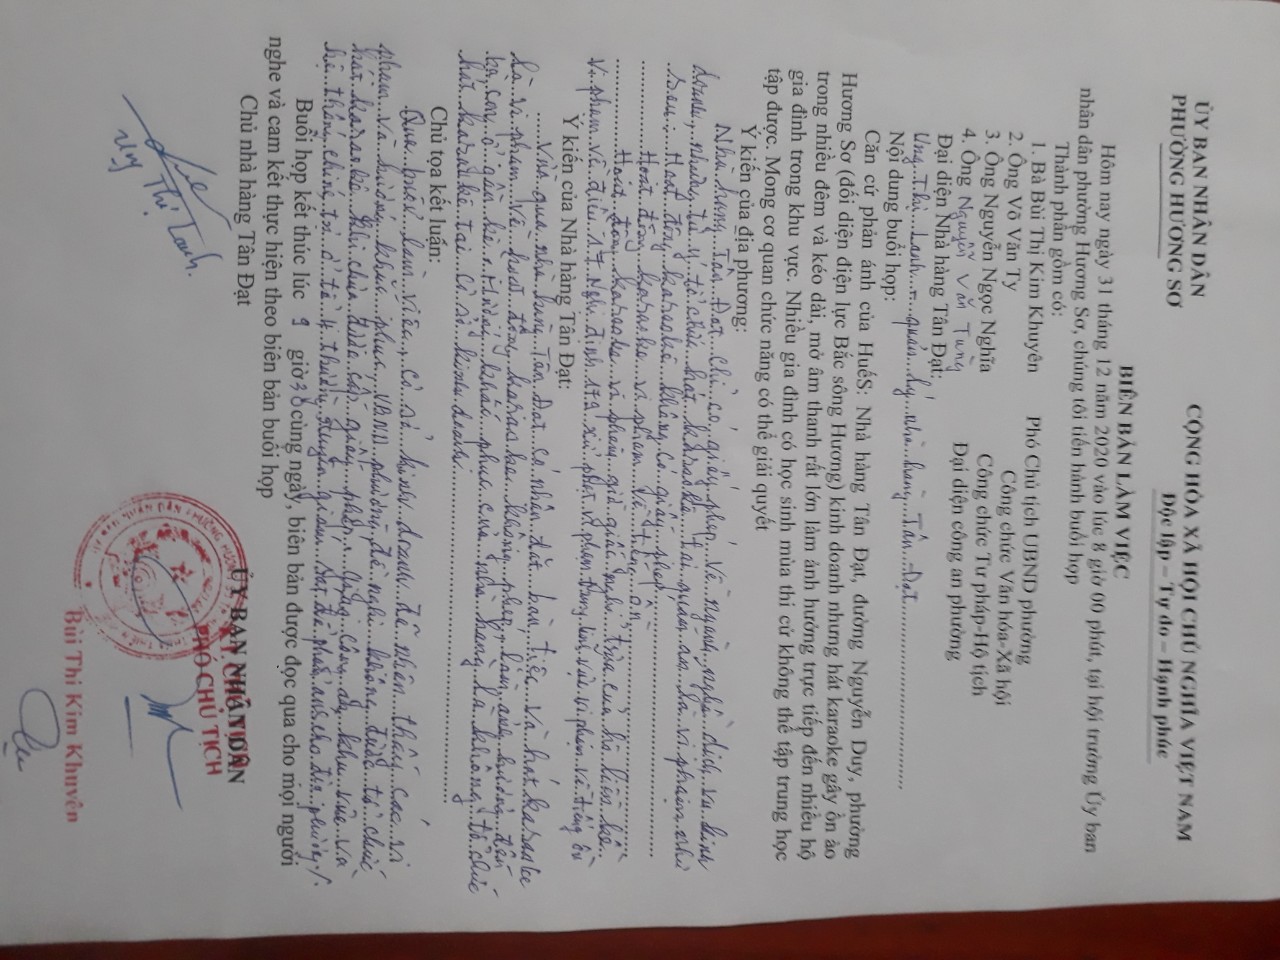 ỦY BAN NHÂN DÂN
PHƯỜNG HƯƠNG SƠ
CỘNG HÒA XÃ HỘI CHỦ NGHĨA VIỆT NAM
Độc lập – Tự do – Hạnh phúc
BIÊN BẢN LÀM VIỆC
Hôm nay ngày 31 tháng 12 năm 2020 vào lúc 8 giờ 00 phút, tại hội trường Ủy ban
nhân dân phường Hương Sơ, chúng tôi tiến hành buổi họp
Thành phần gồm có:
1. Bà Bùi Thị Kim Khuyên Phó Chủ tịch UBND phường
2. Ông Võ Văn Ty Công chức Văn hóa-Xã hội
3. Ông Nguyễn Ngọc Nghĩa Công chức Tư pháp-Hộ tịch
4. Ông Nguyễn Văn Tung Đại diện công an phường
Đại diện Nhà hàng Tân Đạt:
Ung Thị Lanh - quản lý nhà hàng Tân Đạt
Nội dung buổi họp:
Căn cứ phản ánh của HuếS: Nhà hàng Tân Đạt, đường Nguyễn Duy, phường
Hương Sơ (đối diện điện lực Bắc sông Hương) kinh doanh nhưng hát karaoke gây ồn ào
trong nhiều đêm và kéo dài, mở âm thanh rất lớn làm ảnh hưởng trực tiếp đến nhiều hộ
gia đình trong khu vực. Nhiều gia đình có học sinh mùa thi cử không thể tập trung học
tập được. Mong cơ quan chức năng có thể giải quyết
Ý kiến của địa phương:
Nhà hàng Tân Đạt chỉ có giấy phép về ngành nghề dịch vụ kinh
doanh, nhưng tổ chức hát karaoke tại quán là vi phạm như
sau: Hoạt động karaoke không có giấy phép
Hoạt động karaoke vi phạm về tiếng ồn
Hoạt động karaoke vi phạm giờ giấc nghỉ trưa của hộ liền kề.
Vi phạm về điều 17 Nghị định 179 xử phạt vi phạm trong lĩnh vực vi phạm về tiếng ồn
Ý kiến của Nhà hàng Tân Đạt:
Vừa qua nhà hàng Tân Đạt có nhận đặt bàn tiệc và hát karaoke
là vi phạm về hoạt động karaoke không phép, làm ảnh hưởng đến
bà con ở gần kề. Hướng khắc phục của nhà hàng là không tổ chức
hát karaoke tại cơ sở kinh doanh
Chủ tọa kết luận:
Qua buổi làm việc, cơ sở kinh doanh đã nhận thấy cái vi
phạm và hướng khắc phục, UBND phường đề nghị không được tổ chức
hát karaoke khi chưa được cấp giấy phép, công an khu vực và
hệ thống chính trị ở tổ 4 thường xuyên giám sát để phản ánh cho địa phương./.
Buổi họp kết thúc lúc 9 giờ 30 cùng ngày, biên bản được đọc qua cho mọi người
nghe và cam kết thực hiện theo biên bản buổi họp
Chủ nhà hàng Tân Đạt
ỦY BAN NHÂN DÂN
PHÓ CHỦ TỊCH
Ung Thị Lanh
Bùi Thị Kim Khuyên